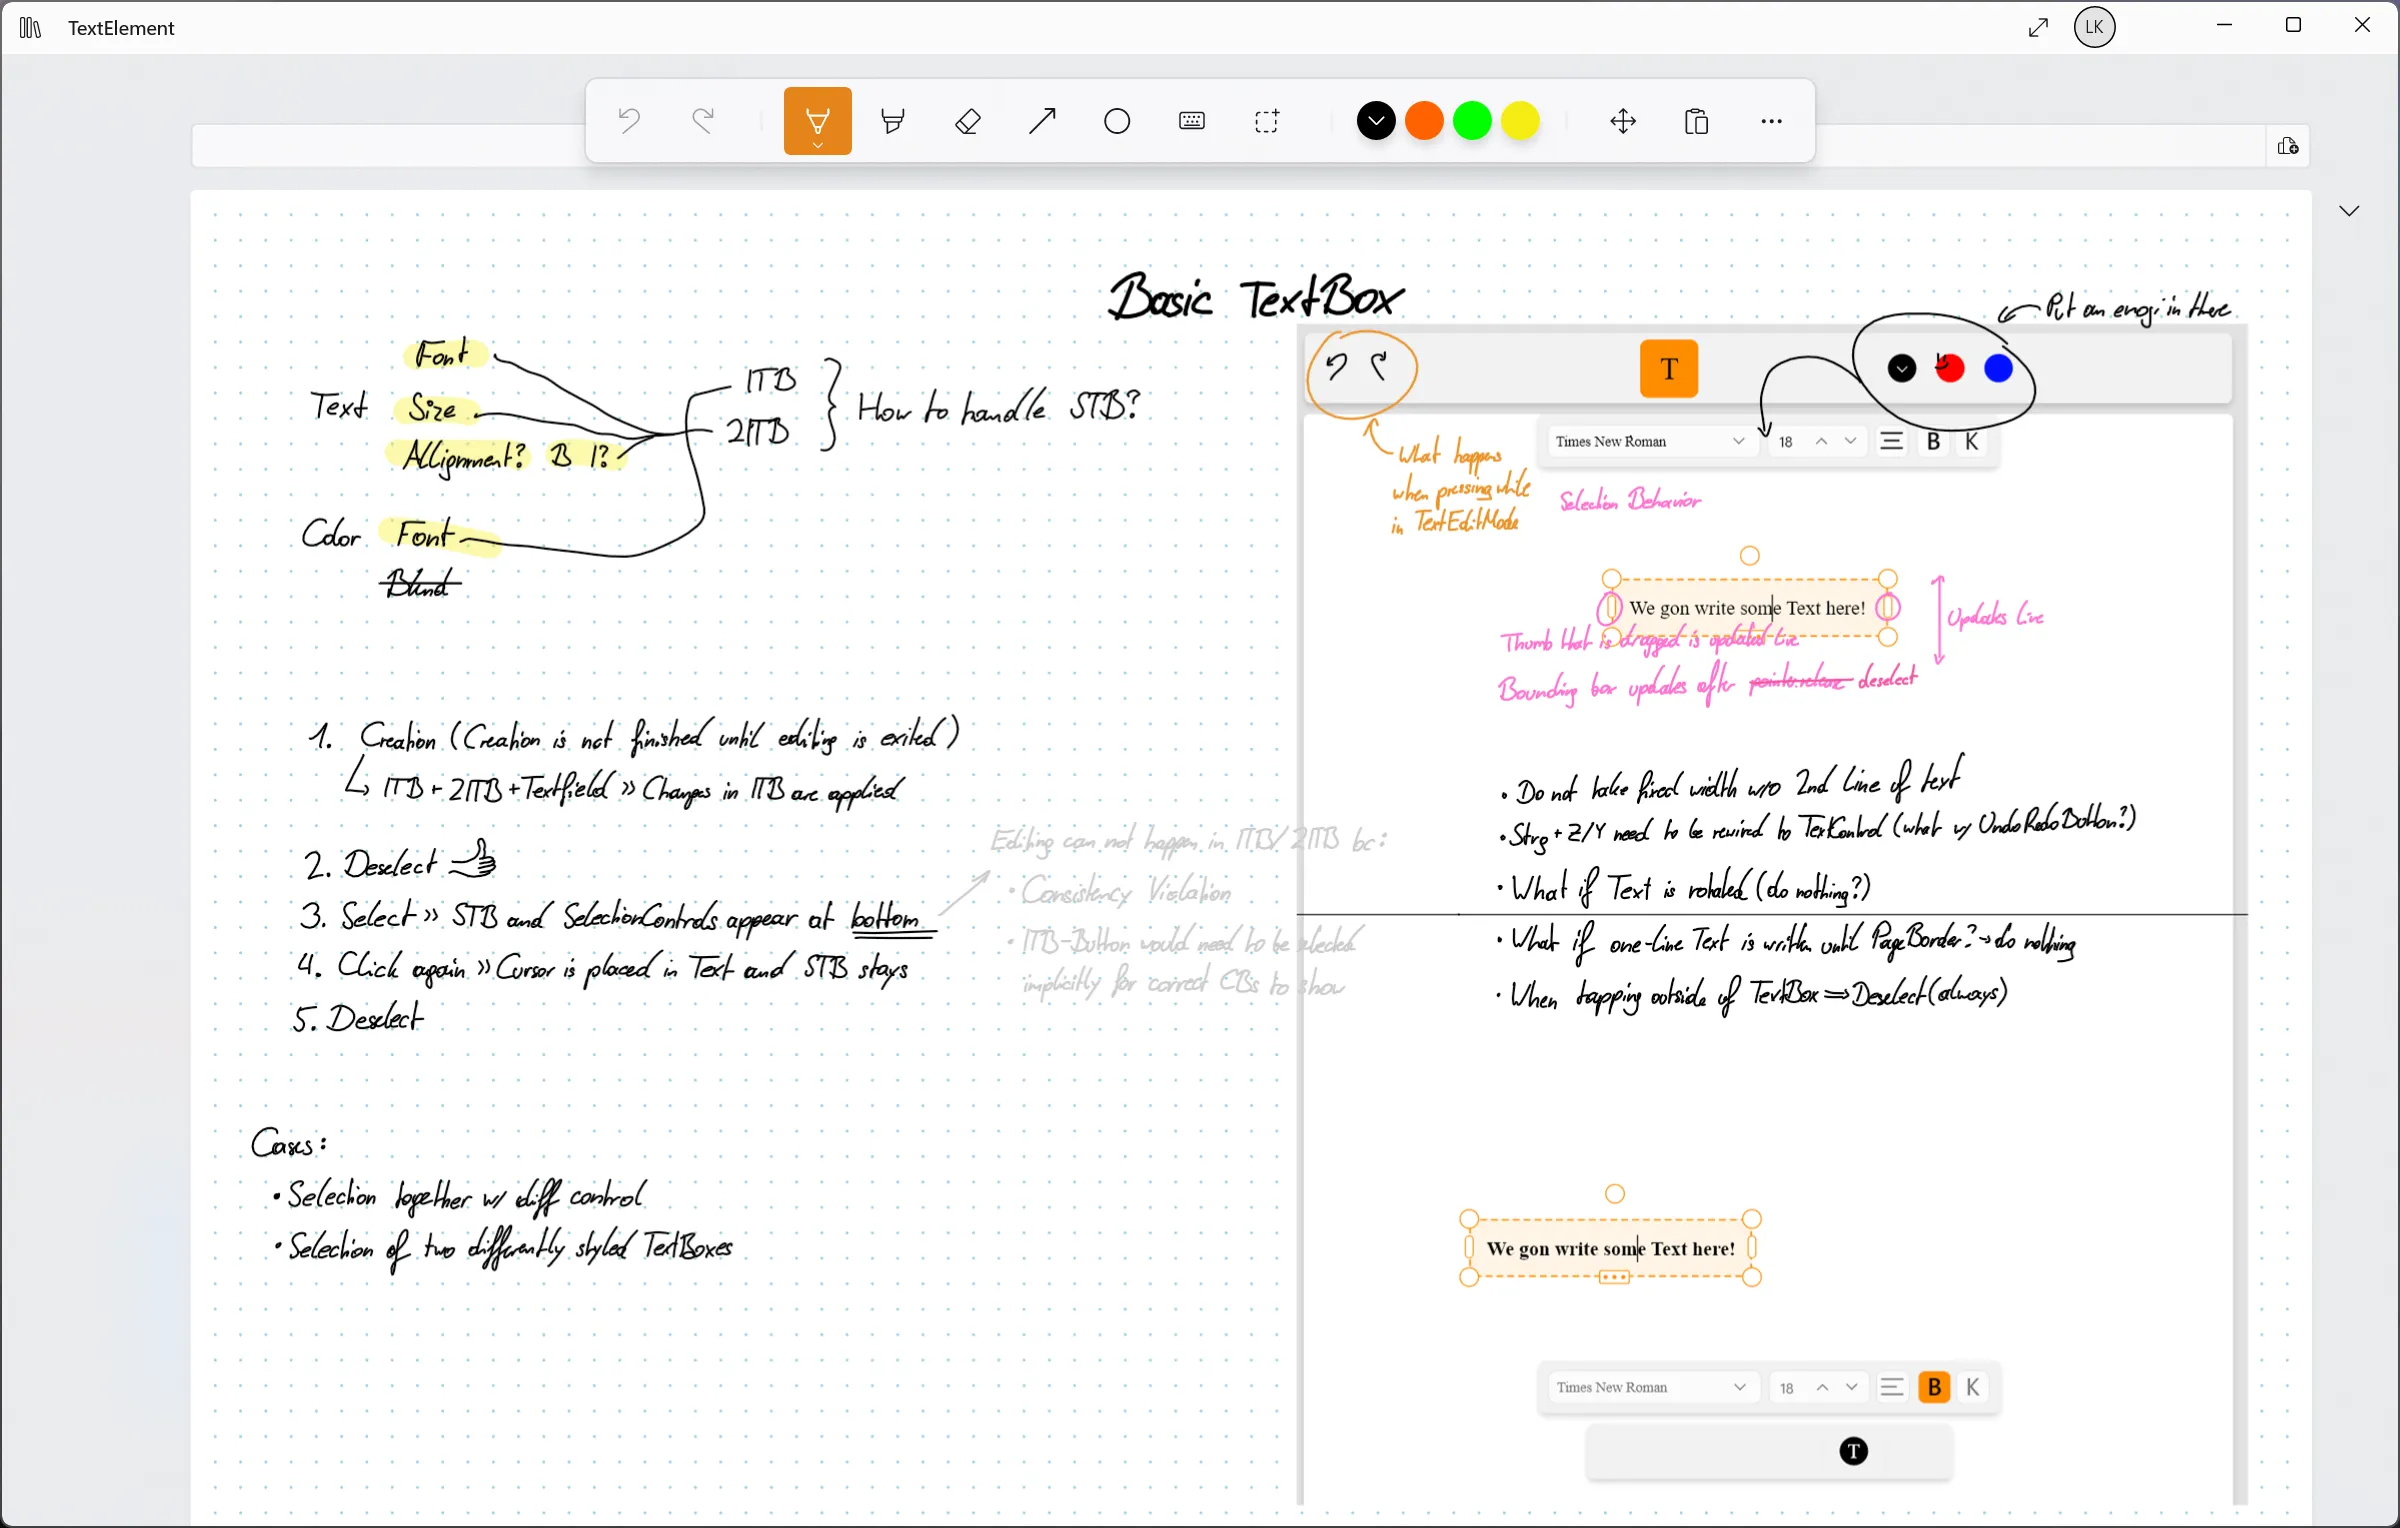 TextElement
LK
Basic TextBox
Put an emogi in there
Font
Text Size
Allignment? B I?
1TB
2TB
How to handle STB?
Color Font
Blind
T
Times New Roman 18 B K
What happens
when pressing while
in TextEditMode
Selection Behavior
We gon write some Text here!
Updates live
Thumb that is dragged is updated live
Bounding box updates after pointer release deselect
1. Creation (Creation is not finished until editing is exited)
↳ 1TB + 2TB + Textfield >> Changes in TB are applied
2. Deselect
3. Select >> STB and SelectionControls appear at bottom
4. Click again >> Cursor is placed in Text and STB stays
5. Deselect
Editing can not happen in 1TB/2TB bc:
• Consistency Violation
• TB-Button would need to be selected
implicitly for correct CBs to show
• Do not take fixed width w/o 2nd line of text
• Strg + Z/Y need to be rewired to TextControl (what w/ UndoRedoButton?)
• What if Text is rotated (do nothing?)
• What if one-line Text is written until PageBorder? → do nothing
• When tapping outside of TextBox ⇒ Deselect (always)
Cases:
• Selection together w/ diff control
• Selection of two differently styled TextBoxes
We gon write some Text here!
Times New Roman 18 B K
T